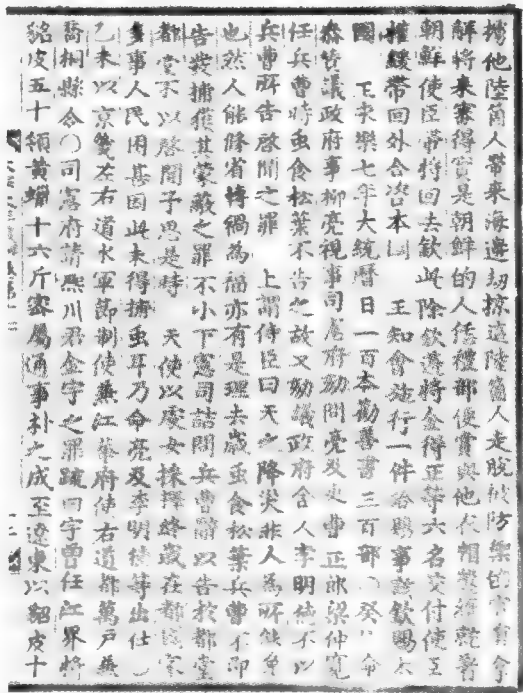 擄他陸箇人帶來海邊刼掠這陸箇人走脫被防禦的官員拿
解將來審得實是朝鮮的人恁禮部便賞與他衣帽
朝鮮使臣帶將回去欽此除欽遵將金得正等六名交付使臣
帶回外合咨本國 王知會施行一件 給賜事欽賜本
國 王永樂七年大統曆日一百本勸善書三百部 癸 命
參贊議政府事柳亮視事司憲府劾問亮及吏曹正郎梁仲寬
任兵曹時虫食松葉不告之故又劾議政府舍人李明德不以
兵曹所告啓聞之罪 上謂侍臣曰天之降災非人為所能
也然人能修省轉禍為福亦有是理去歲虫食松葉兵曹不卽
告發捕獲其蒙蔽之罪不小下憲司詰問兵曹辭以告於都堂
都堂不以啓聞予思是時 天使以處女採擇終歲在都
多事人民困甚因此未得捕虫耳乃命亮及李明德等出仕
乙未以 左右道水軍節制使兼江華府使右道都萬戶兼
喬桐縣令 司憲府請熙川君金宇之罪疏曰宇曾任江界將
貂皮五十領黃蠟十六斤密屬通事朴之成至遼東以貂皮十